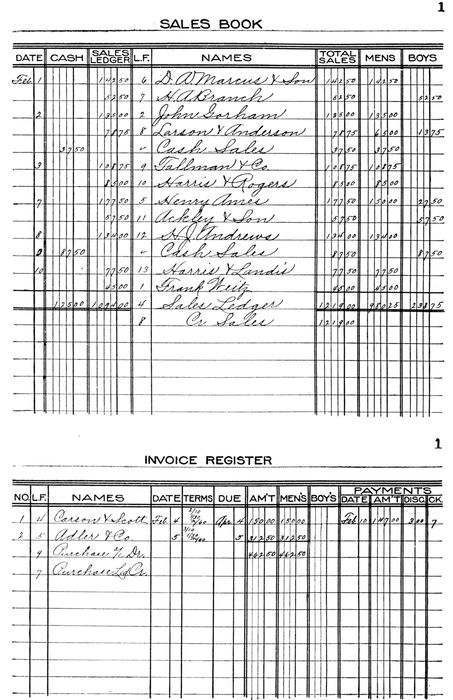 1
SALES BOOK
DATE CASH SALES LEDGER L.F. NAMES TOTAL SALES MENS BOYS
Feb 1 142 50 6 D. W. Marcus & Son 142 50 142 50
52 50 7 H. A. Branch 52 50 52 50
2 135 00 2 John Gorham 135 00 135 00
78 75 8 Larson & Anderson 78 75 65 00 13 75
37 50 ✓ Cash Sales 37 50 37 50
3 108 75 9 Tallman & Co. 108 75 108 75
85 00 10 Harris & Rogers 85 00 85 00
7 177 50 5 Henry Ames 177 50 150 00 27 50
57 50 11 Ackley & Son 57 50 57 50
8 134 00 12 H. J. Andrews 134 00 134 00
87 50 ✓ Cash Sales 87 50 87 50
10 77 50 13 Harris & Landis 77 50 77 50
45 00 1 Frank Weitz 45 00 45 00
125 00 1094 00 4 Sales Ledger 1219 00 980 25 238 75
8 Cr. Sales 1219 00
1
INVOICE REGISTER
PAYMENTS
NO. L.F. NAMES DATE TERMS DUE AM'T MEN'S BOY'S DATE AM'T DISC. CK.
1 4 Carson & Scott Feb 4 2/10 Apr. 4 150 00 150 00 Feb 10 147 00 3 00 7
2 5 Adler & Co. 5 5 312 50 312 50
9 Purchase a/c Dr. 462 50 462 50
7 Purchase Led. Cr.